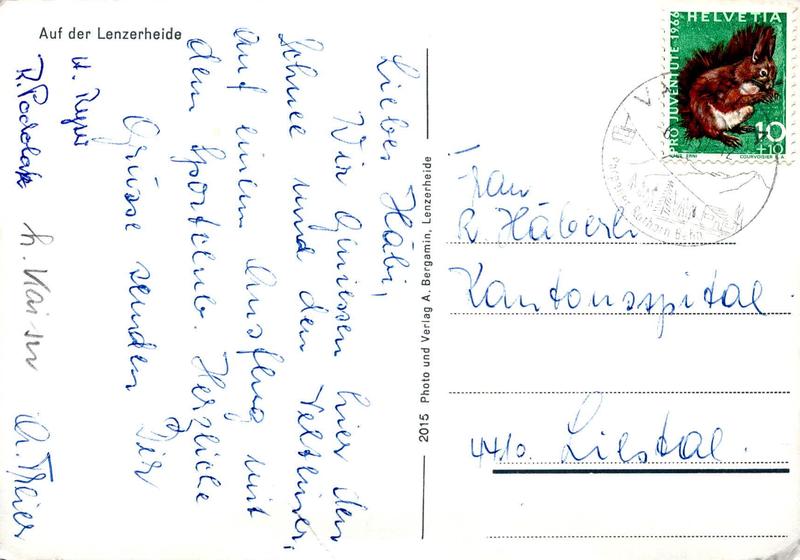 Auf der Lenzerheide
Liebes Häbi,
Wir Geniessen hier den
Schnee und den Veltliner,
auf einem Ausflug mit
dem Sportclub. Herzliche
Grüsse senden Dir
R. Podolak
h. Kaiser
2015 Photo und Verlag A. Bergamin, Lenzerheide
HELVETIA
PRO JUVENTUTE 1966
10
+10
HANS ERNI
COURVOISIER S.A.
Rothorn-Bahn
Frau
R. Häberli
Kantonsspital
4410. Liestal.